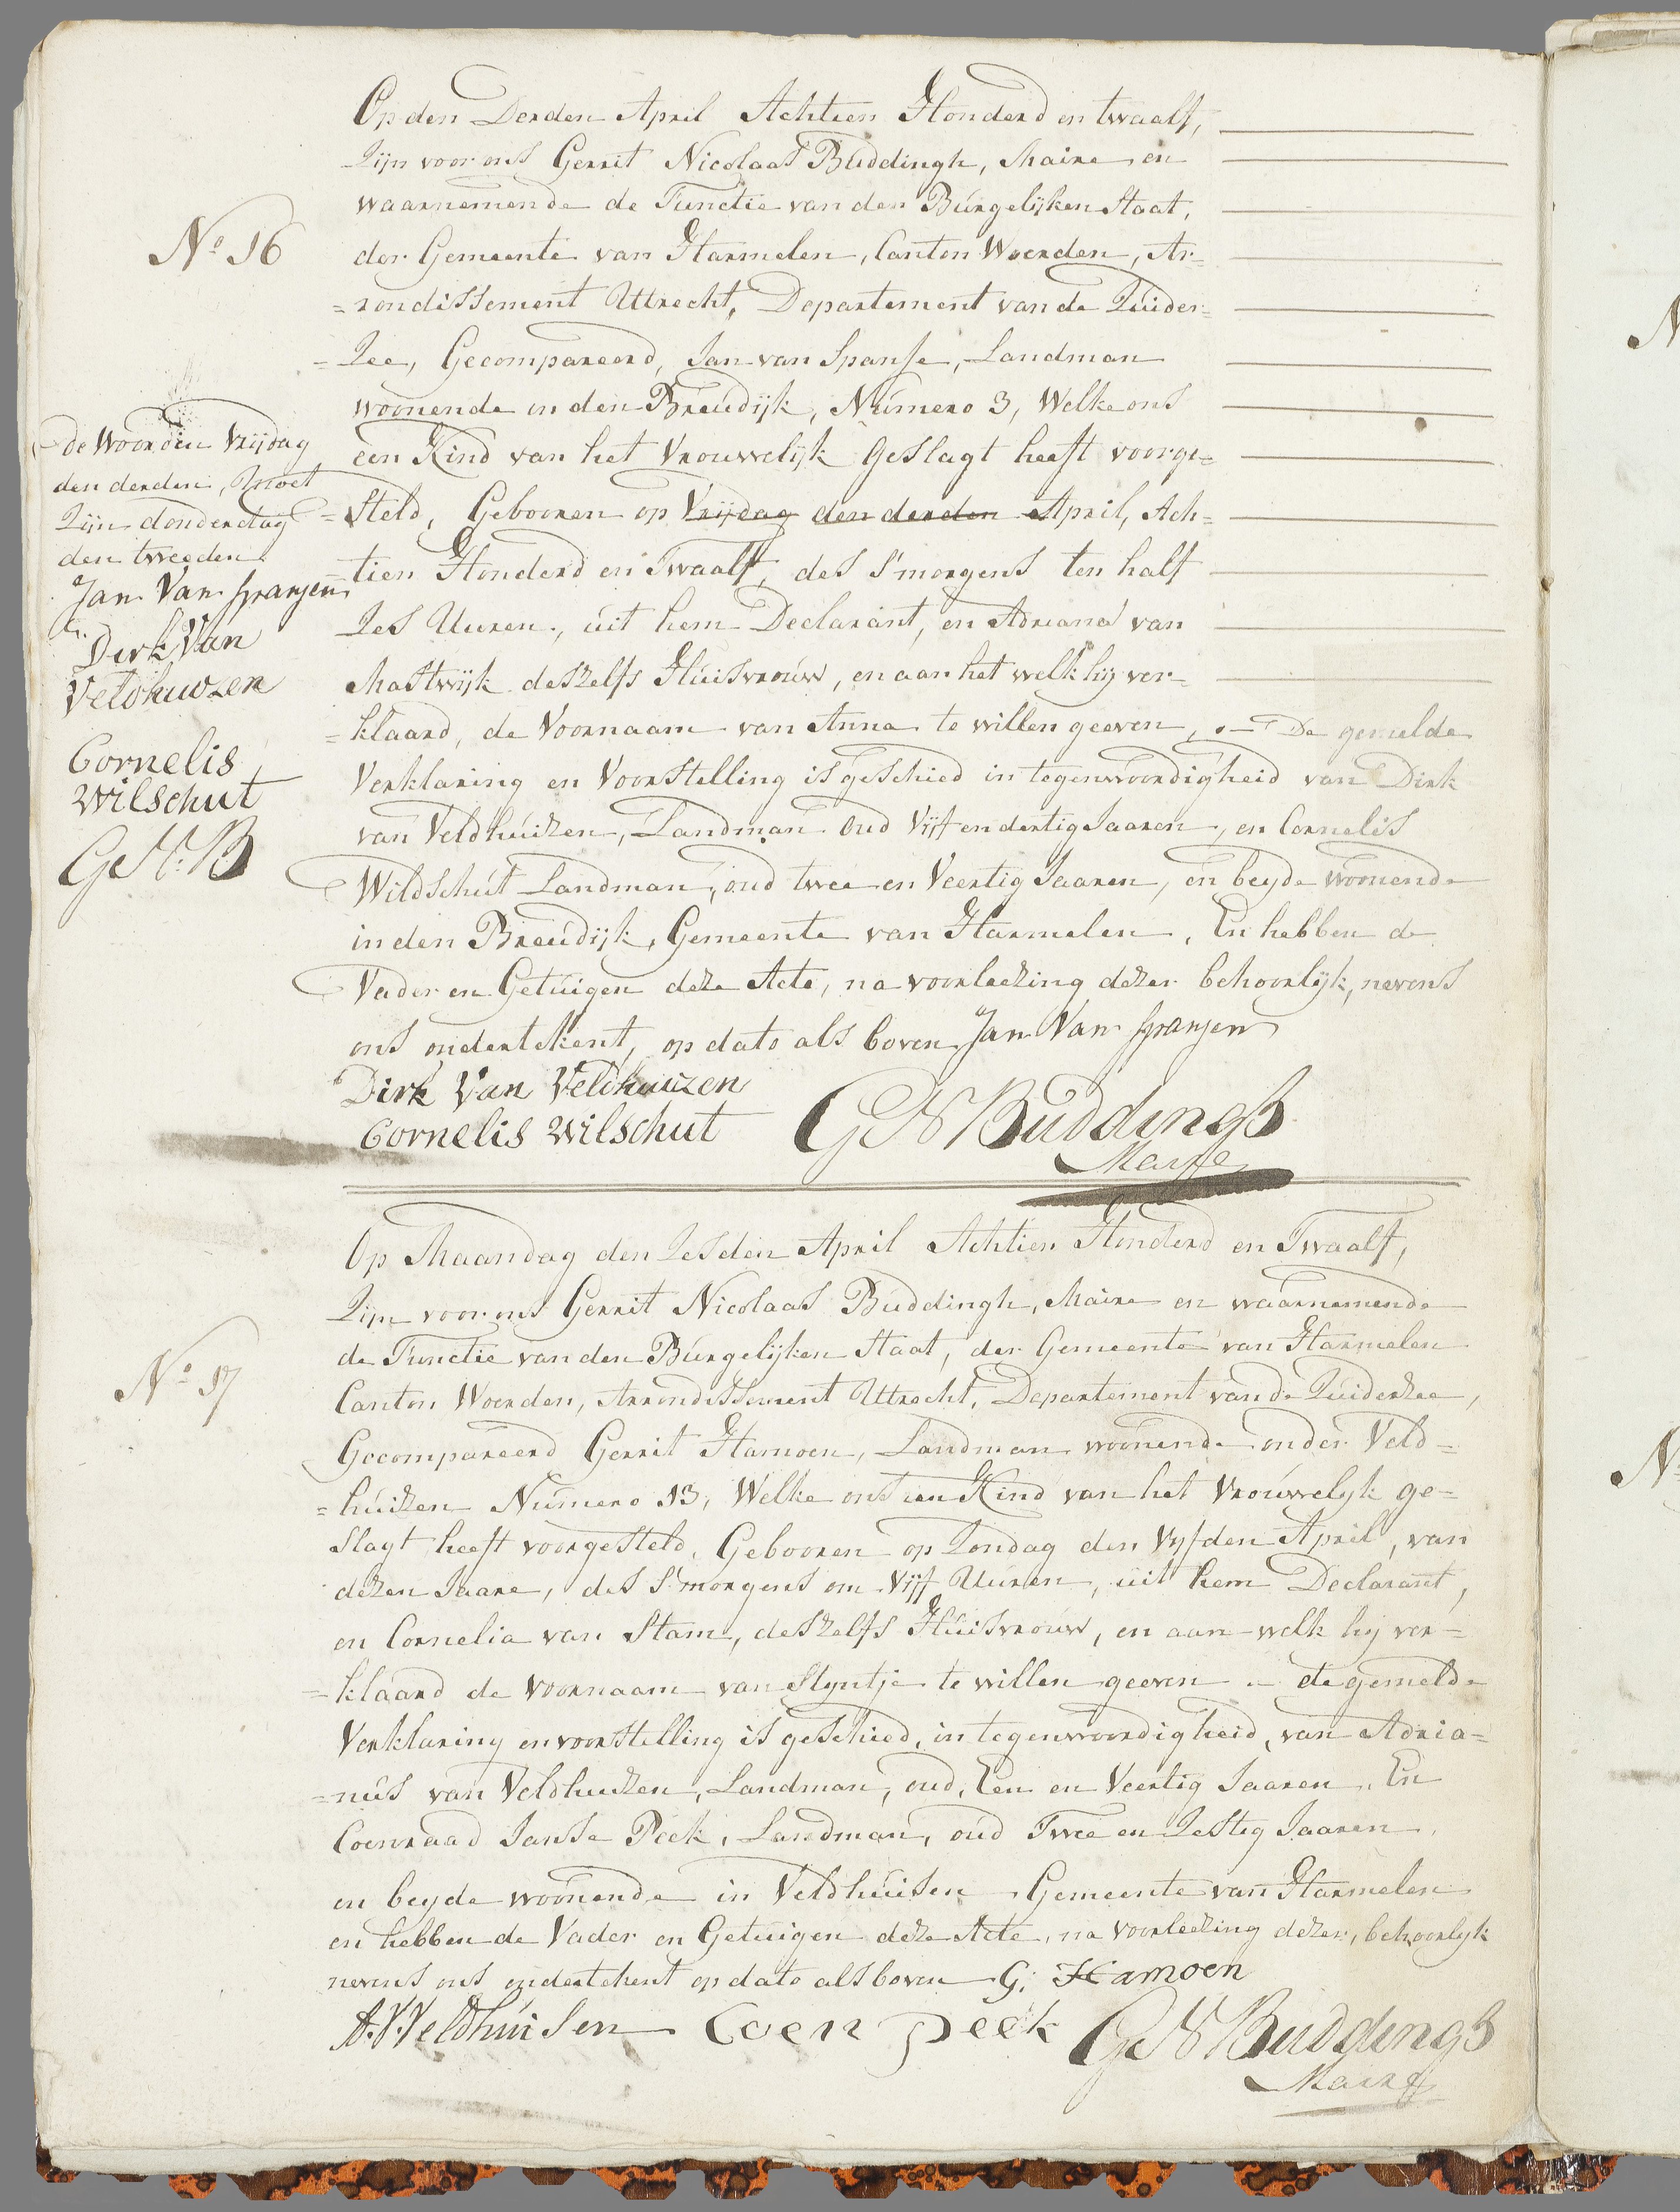 Op den Derden April Achtien Honderd en twaalf,
Zijn voor ons Gerrit Nicolaas Buddingh, Maire en
waarnemende de Functie van den Burgelijken Staat,
No 16
der Gemeente van Harmelen, Canton Woerden, Ar=
=rondissement Uttrecht, Departement van de Zuider=
=Zee, Gecompareerd, Jan van Spanje, Landman
woonende in den Breudijk, Numero 3, Welke ons
een Kind van het Vrouwelijk Geslagt heeft voorge=
=steld, Gebooren op Vrijdag den derden April, Ach=
=tien Honderd en Twaalf, des s'morgens ten half
Zes Uuren, uit hem Declarant, en Adriana van
Mastwijk deszelfs Huisvrouw, en aan het welk hij ver=
=klaard, de Voornaam van Anna te willen geeven, .— De gemelde
Verklaring en Voorstelling is geschied in tegenwoordigheid van Dirk
van Veldhuizen, Landman oud Vijf en dertig Jaaren, en Cornelis
Wildschut Landman, oud twee en Veertig Jaaren, en beyde woonende
in den Breudijk, Gemeente van Harmelen, En hebben de
Vader en Getuigen deze Acte, na voorleezing dezer behoorlijk, nevens
ons ondertekent, op dato als boven Jan Van Spanjen
Dirk Van Veldhuizen
Cornelis Wilschut
GN Buddingh
Maire
de Woorden Vrijdag
den derden, moet
Zijn donderdag
den tweeden
Jan Van Spanjen
Dirk Van
Veldhuizen
Cornelis
Wilschut
GN:B
Op Maandag den Zesden April Achtien Honderd en Twaalf,
Zijn voor ons Gerrit Nicolaas Buddingh, Maire en waarnemende
de Functie van den Burgelijken Staat, der Gemeente van Harmelen
No 17
Canton Woerden, Arrondissement Uttrecht, Departement van de Zuiderzee,
Gecompareerd Gerrit Hamoen, Landman woonende onder Veld=
=huizen Numero 13, Welke ons een Kind van het Vrouwelyk ge=
slagt heeft voorgesteld, Gebooren op Zondag den Vyfden April, van
dezen Jaare, des s'morgens om Vijf Uuren, uit hem Declarant,
en Cornelia van Stam, deszelfs Huisvrouw, en aan welk hij ver=
=klaard de voornaam van Styntje te willen geeven .– de gemelde
Verklaring en voorstelling is geschied, in tegenwoordigheid, van Adria=
=nus van Veldhuizen, Landman, oud, Een en Veertig Jaaren, En
Coenraad Janse Peek, Landman, oud Twee en Zestig Jaaren,
en beyde woonende in Veldhuisen Gemeente van Harmelen
en hebben de Vader en Getuigen deze Acte, na voorleezing dezer, behoorlyk
nevens ons ondertekent op dato als boven G: Hamoen
A.V.Veldhuisen Coen Peek GN Buddingh
Maire